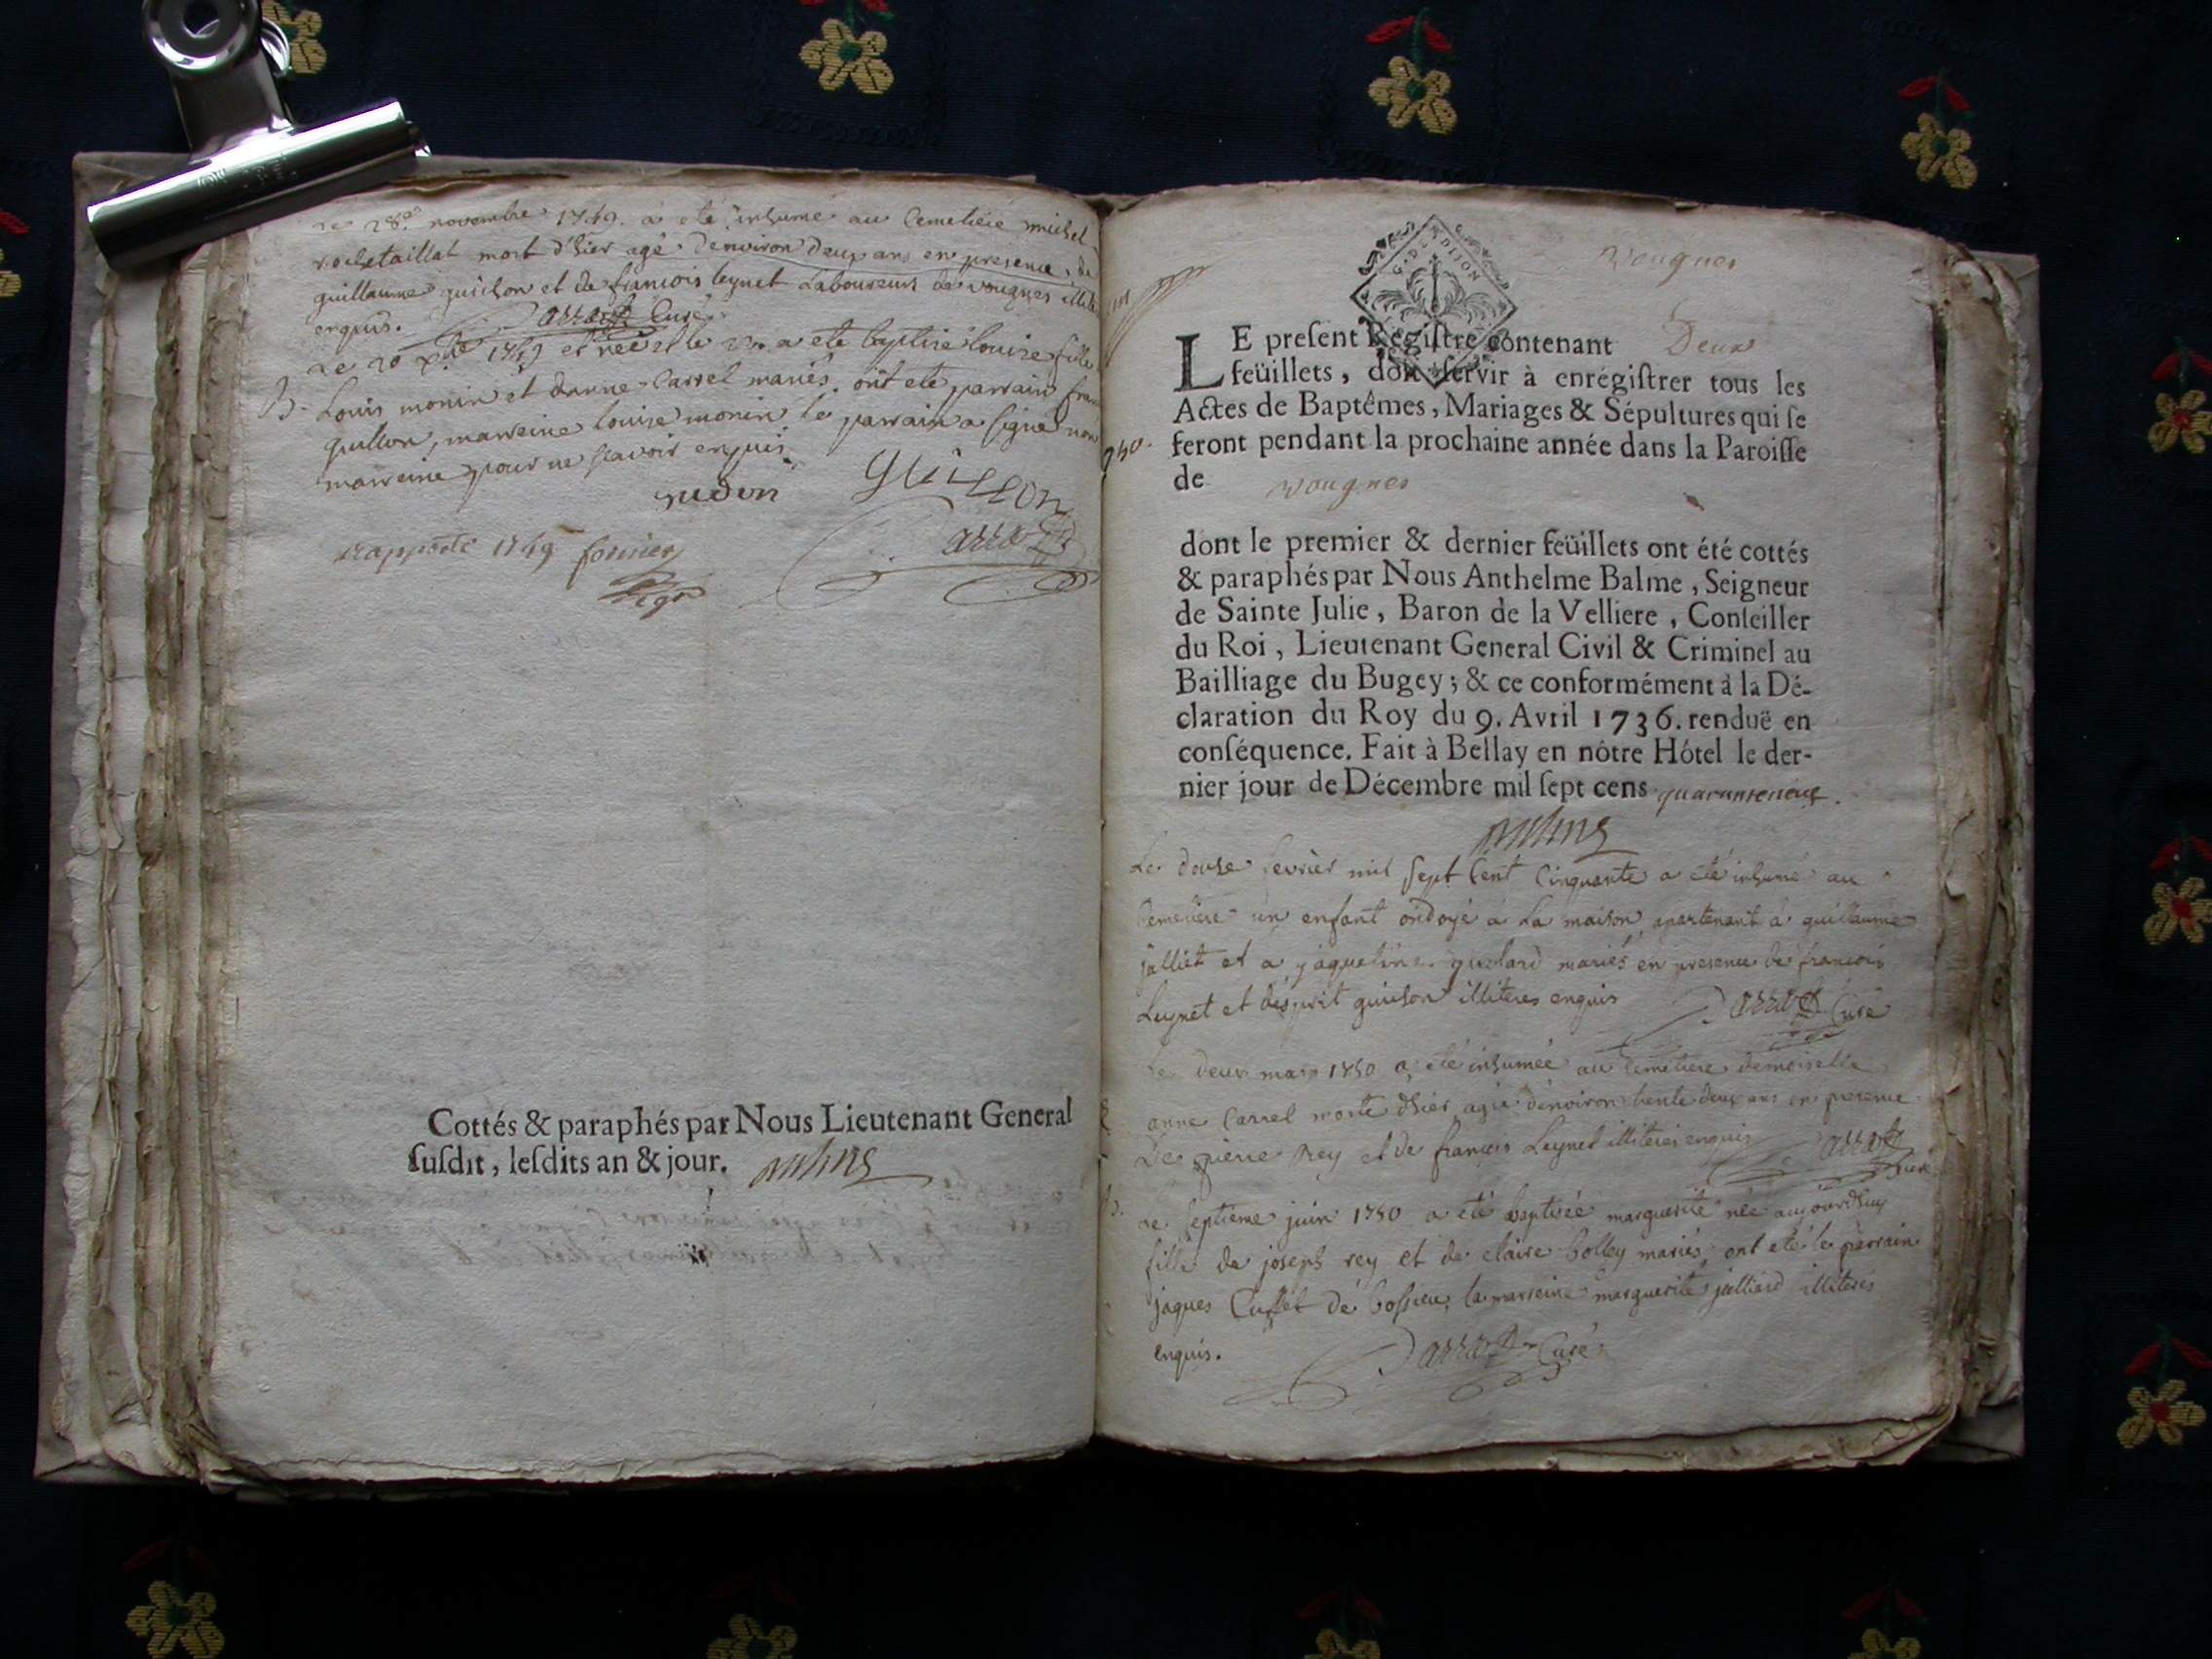 28e novembre 1749. a eté inhumé au Cemetiére michel
rochetaillat mort d'hier agé d'environ deux ans en presence de
guillaume guichon et de francois leynet Laboureurs de vougnes
enquis. Curé
Le 20 xbre 1749 et née le a eté baptisé louise fille
B. Louis monin et danne Carrel mariés. ont eté parrain
guillon, marreine louise monin le parrain a signé non
marreine pour ne scavoir enquis.
guillon
rapporté 1749
Cottés & paraphés par Nous Lieutenant General
ſuſdit, leſdits an & jour.
G. DE DIJON
Vougnes
LE preſent Regiſtre contenant Deux
feüillets, doit ſervir à enrégiſtrer tous les
Actes de Baptêmes, Mariages & Sépultures qui ſe
feront pendant la prochaine année dans la Paroiſſe
de Vougnes
dont le premier & dernier feüillets ont été cottés
& paraphés par Nous Anthelme Balme, Seigneur
de Sainte Julie, Baron de la Velliere, Conſeiller
du Roi, Lieutenant General Civil & Criminel au
Bailliage du Bugey; & ce conformément à la Dé-
claration du Roy du 9. Avril 1736. renduë en
conſéquence. Fait à Bellay en nôtre Hôtel le der-
nier jour de Décembre mil ſept cens quaranteneuf.
Le douse fevrier mil sept Cent Cinquante a eté inhumé au
Cemetiere un enfant ondoyé a La maison, apartenant à guillaume
jalliet et a jaqueline mariés en presence de francois
Leynet et desprit guichon illiteres enquis Curé
Le deux mars 1750 a eté inhumée au Cemetiere demoiselle
anne Carrel morte dhier agée d'environ trente deux ans en presence
De pierre Rey et de françois Leynet illiteres enquis Curé
B. Le septième juin 1750 a eté baptisée marguerite née aujourdhuy
fille de joseph rey et de claire bolley mariés, ont eté le parrain
jaques Cuffet de bossieu, la marreine marguerite jalliard illiterés
enquis. Curé